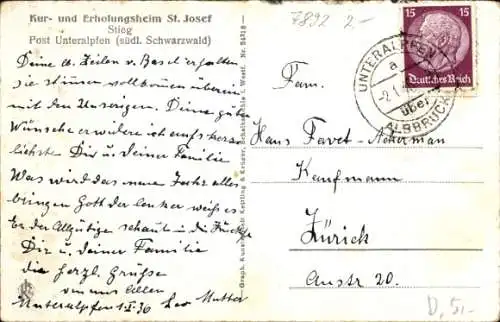 Kur- und Erholungsheim St. Josef
Stieg
Post Unteralpfen (südl. Schwarzwald)
Deine lb. Zeilen v. Basel erhalten
sie stimmen vollkommen überein
mit den Unserigen. Deine guten
Wünsche erwidere ich aufs herz-
lichste Dir u deiner Familie
Was wird das neue Jahr alles
bringen Gott der Lenker weiß es
Er der Allgütige schaut in die
Dir u. deiner Familie
die herzl. Grüsse
von uns allen
Unteralpfen 1.I.36 Leo Mutter
Graph. Kunstanstalt Kettling & Krüger, Schalksmühle i. Westf. Nr.
7892 2.-
15 15
Deutsches Reich
UNTERALPFEN
a
über
ALBBRUCK
Fam.
Hans Favet-Ackerman
Kaufmann
Zürich
Austr 20.
D, 5,-